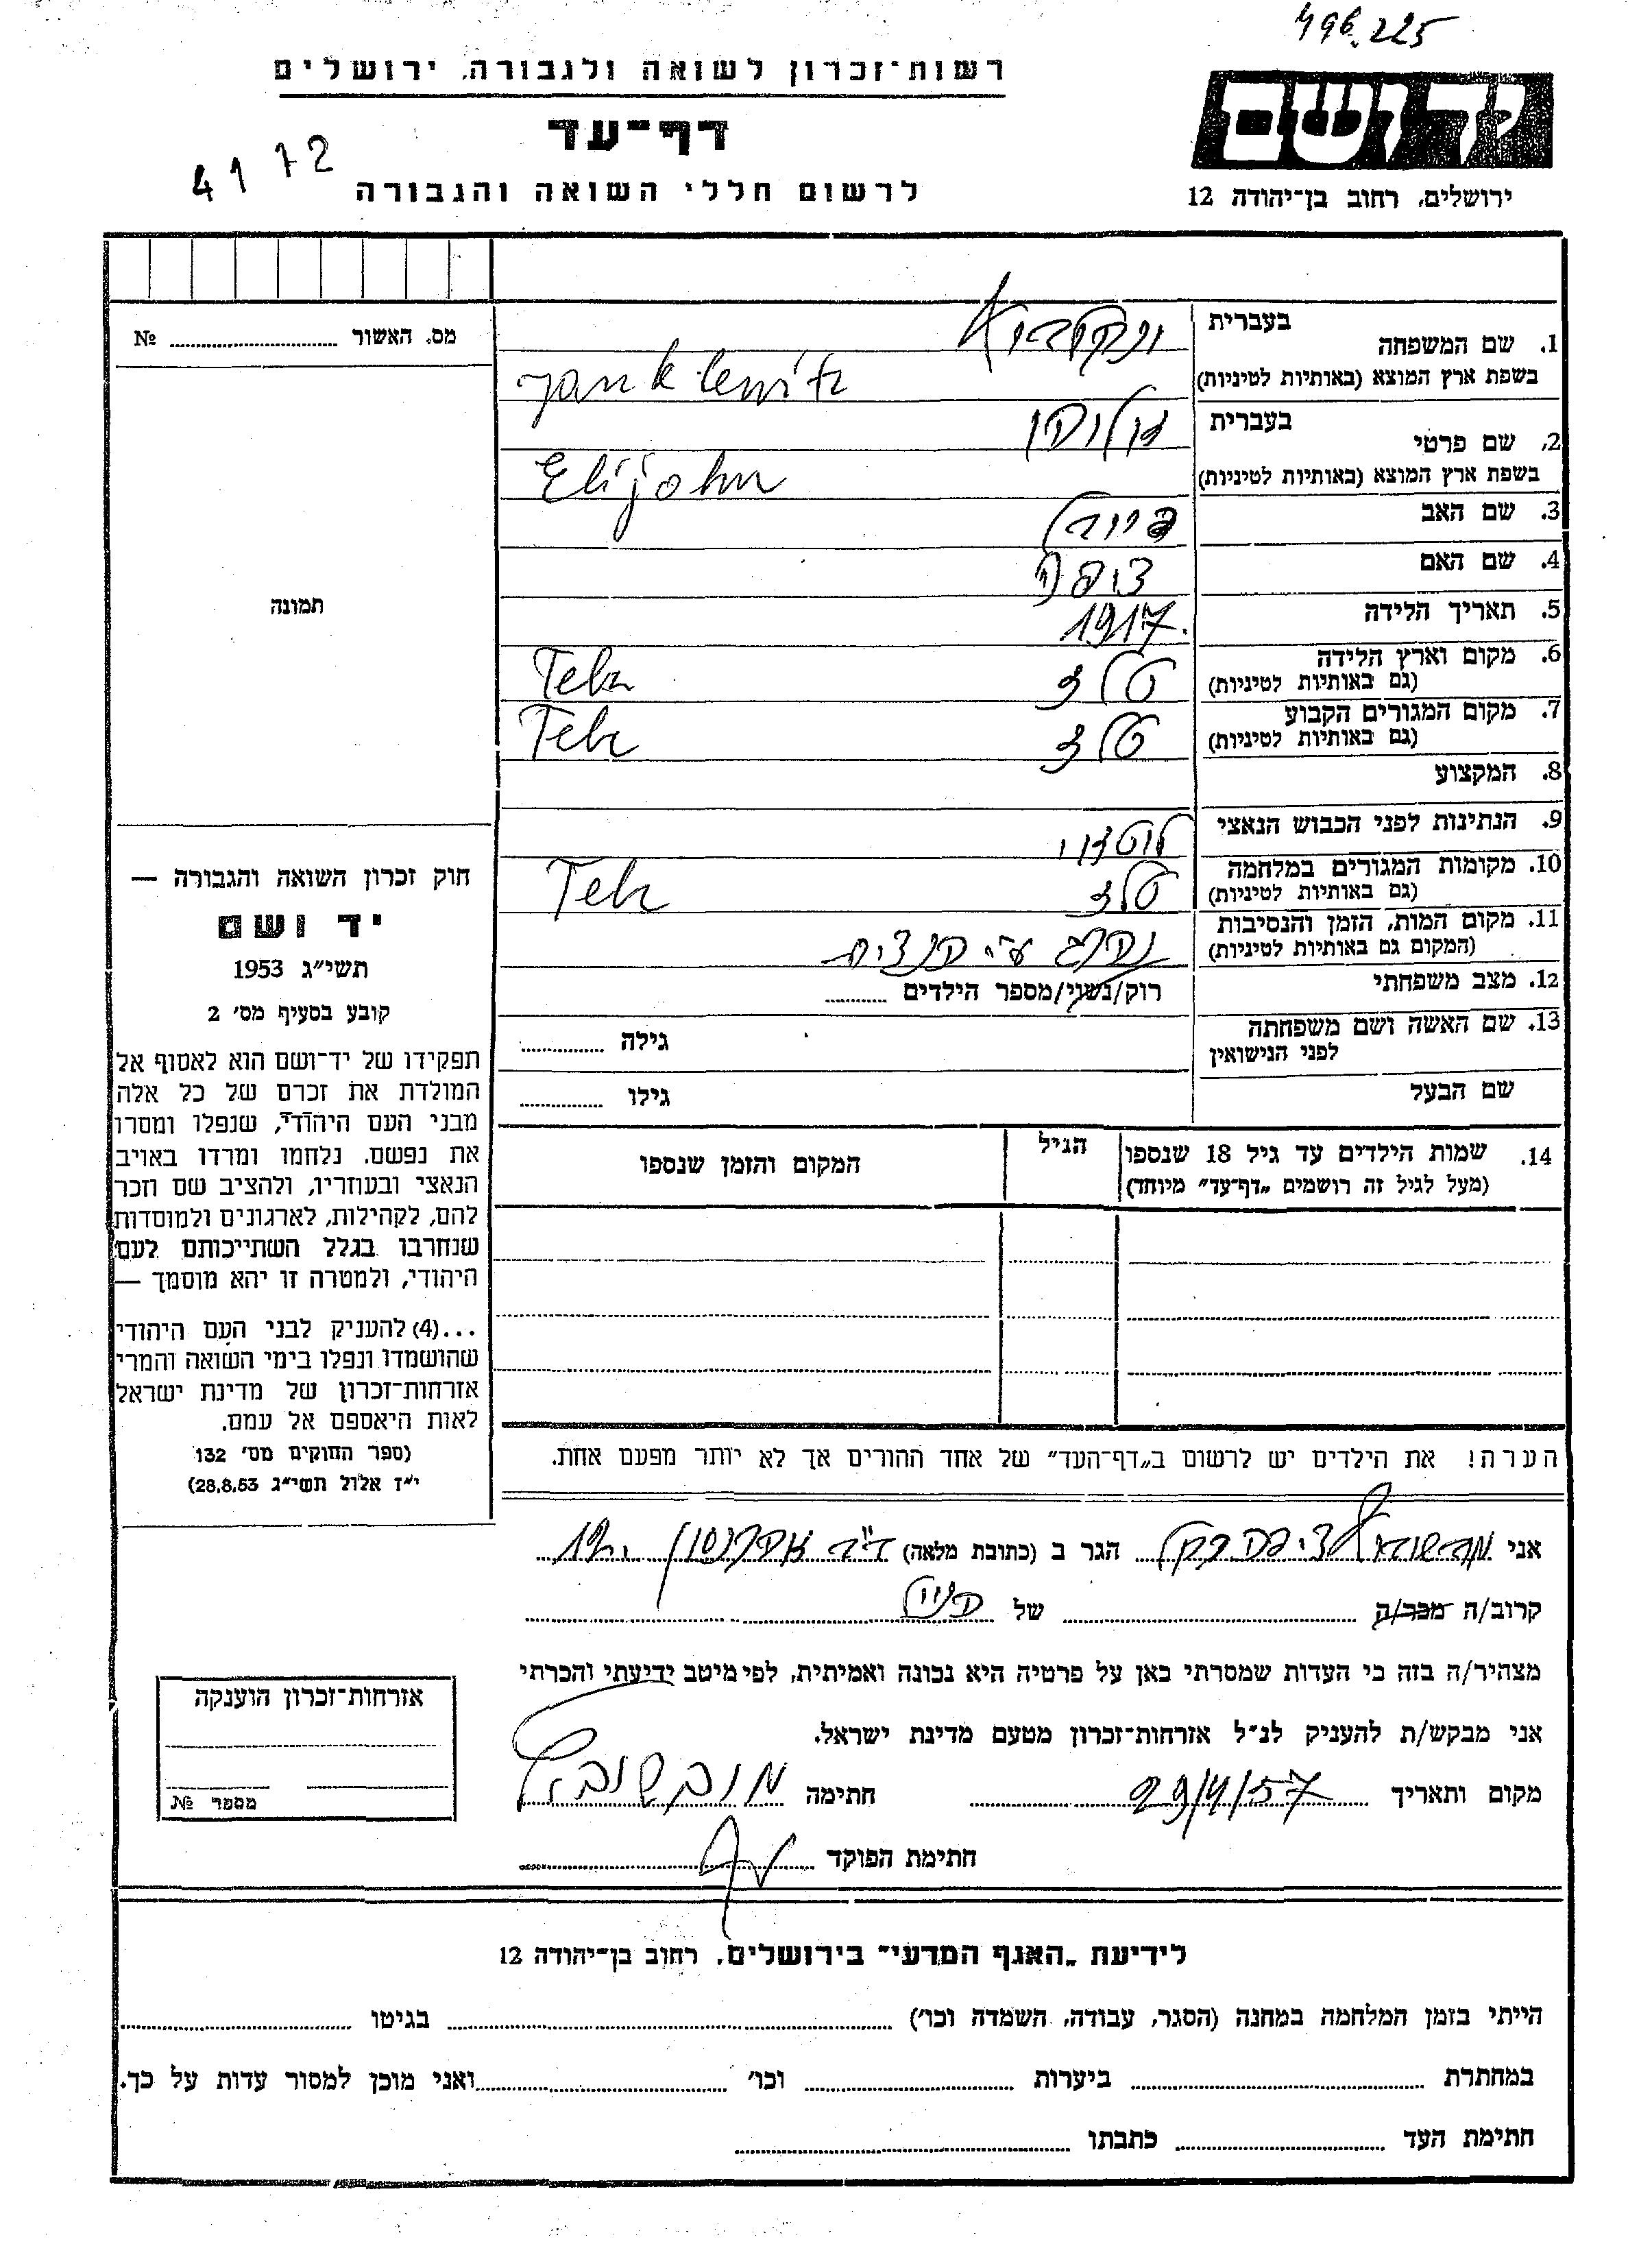 496.225
רשות־זכרון לשואה ולגבורה, ירושלים
יד ושם
דף־עד
4172
לרשום חללי השואה והגבורה
ירושלים, רחוב בן־יהודה 12
מס. האשור № ........
בעברית
1. שם המשפחה
בשפת ארץ המוצא (באותיות לטיניות) Janklewitz
בעברית
2. שם פרטי
בשפת ארץ המוצא (באותיות לטיניות) Elijohu
3. שם האב
4. שם האם
5. תאריך הלידה 1917
6. מקום וארץ הלידה טלז Telz
(גם באותיות לטיניות)
7. מקום המגורים הקבוע טלז Telz
(גם באותיות לטיניות)
8. המקצוע
9. הנתינות לפני הכבוש הנאצי
10. מקומות המגורים במלחמה טלז Telz
(גם באותיות לטיניות)
11. מקום המות, הזמן והנסיבות נהרג ע״י הנצים
(המקום גם באותיות לטיניות)
12. מצב משפחתי רוק/נשוי/מספר הילדים ........
13. שם האשה ושם משפחתה גילה ........
לפני הנישואין
שם הבעל גילו ........
14. שמות הילדים עד גיל 18 שנספו הגיל המקום והזמן שנספו
(מעל לגיל זה רושמים „דף־עד״ מיוחד)
תמונה
חוק זכרון השואה והגבורה —
יד ושם
תשי״ג 1953
קובע בסעיף מס׳ 2
תפקידו של יד־ושם הוא לאסוף אל
המולדת את זכרם של כל אלה
מבני העם היהודי, שנפלו ומסרו
את נפשם, נלחמו ומרדו באויב
הנאצי ובעוזריו, ולהציב שם וזכר
להם, לקהילות, לארגונים ולמוסדות
שנחרבו בגלל השתייכותם לעם
היהודי, ולמטרה זו יהא מוסמך —
...(4) להעניק לבני העם היהודי
שהושמדו ונפלו בימי השואה והמרי
אזרחות־זכרון של מדינת ישראל
לאות היאספם אל עמם.
(ספר החוקים מס׳ 132
י״ז אלול תשי״ג 28.8.53)
הערה! את הילדים יש לרשום ב„דף־העד״ של אחד ההורים אך לא יותר מפעם אחת.
אני הגר ב (כתובת מלאה)
קרוב/ה מכר/ה ........ של
מצהיר/ה בזה כי העדות שמסרתי כאן על פרטיה היא נכונה ואמיתית, לפי מיטב ידיעתי והכרתי
אני מבקש/ת להעניק לנ״ל אזרחות־זכרון מטעם מדינת ישראל.
מקום ותאריך 29/4/57 חתימה
חתימת הפוקד
אזרחות־זכרון הוענקה
מספר №
לידיעת „האגף המדעי״ בירושלים, רחוב בן־יהודה 12
הייתי בזמן המלחמה במחנה (הסגר, עבודה, השמדה וכו׳) ........ בגיטו ........
במחתרת ........ ביערות ........ וכו׳ ........ ואני מוכן למסור עדות על כך.
חתימת העד ........ כתבתו ........